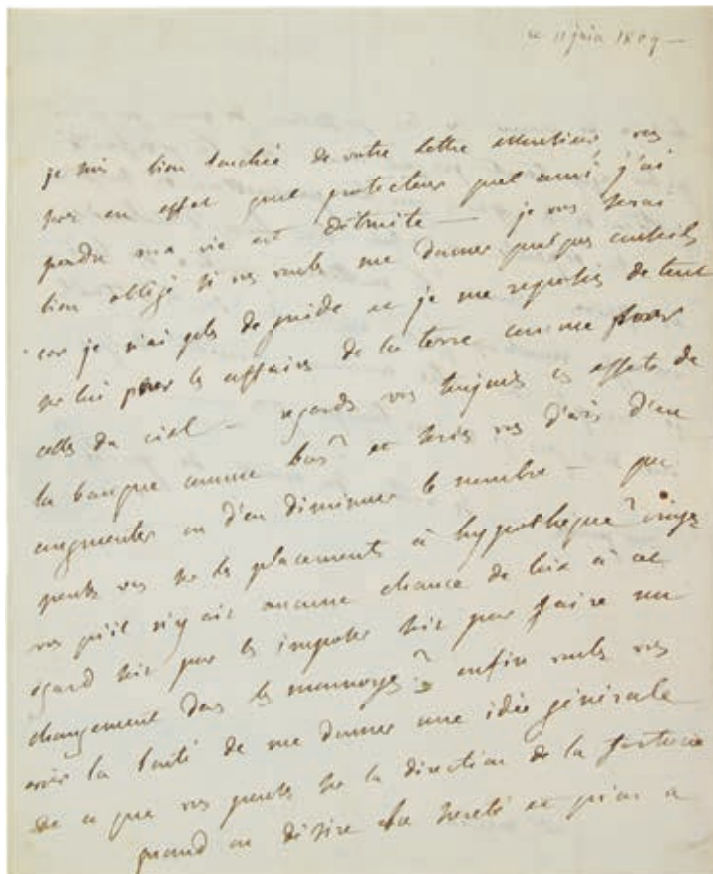 ce 11 juin 1809 —
je suis bien touchée de votre lettre monsieur vous
savez en effet quel protecteur quel ami j'ai
perdu ma vie est détruite — je vous serai
bien obligé si vous voulez me donner quelques conseils
car je n'ai plus de guide et je me reposois de tout
sur lui pour les affaires de la terre comme pour
celles du ciel — regardez vous toujours les effets de
la banque comme bons? et seriez vous d'avis d'en
augmenter ou d'en diminuer le nombre — que
pensez vous sur les placements à hypothèque? croyez
vous qu'il n'y ait aucune chance de loix à cet
égard soit par les impôts soit par faire un
changement dans les monnoyes? enfin voulez vous
avoir la bonté de me donner une idée générale
de ce que vous pensez sur la direction de la fortune
quand on désire sureté et qu'on a